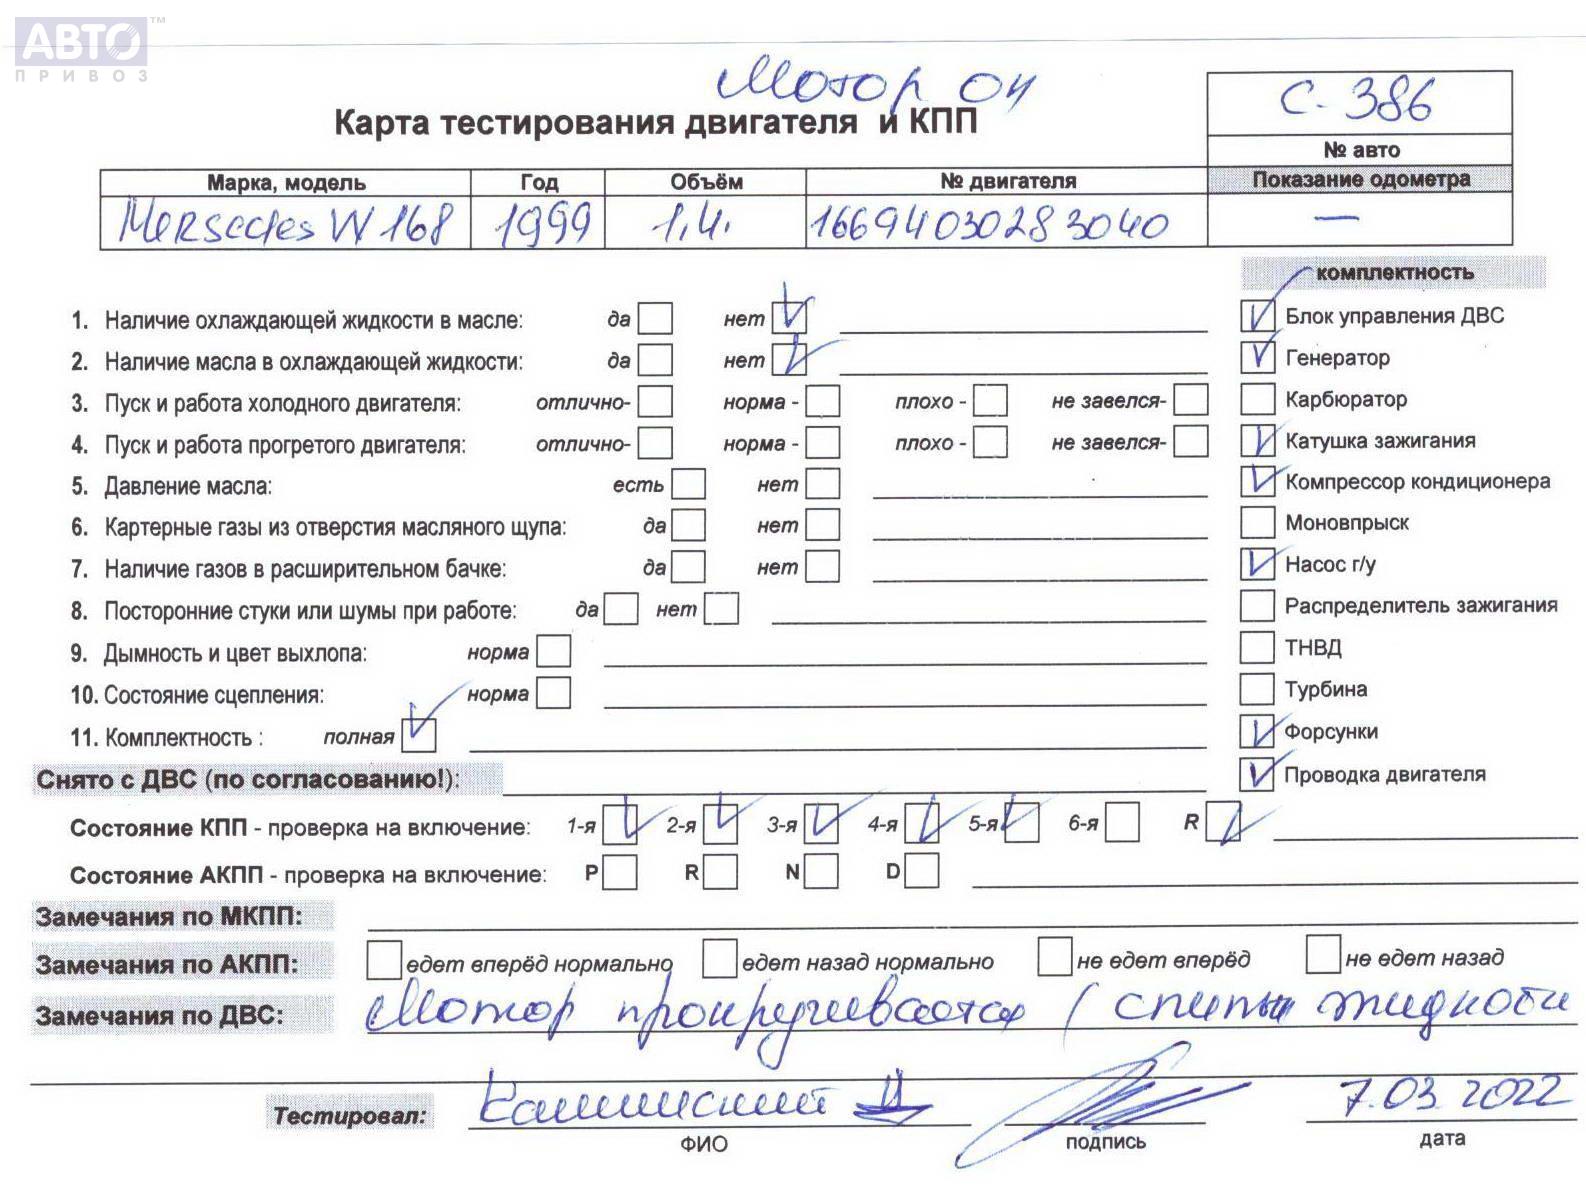 АВТО™
ПРИВОЗ
Мотор ОК
С-386
Карта тестирования двигателя и КПП
№ авто
Марка, модель Год Объём № двигателя Показание одометра
Mersedes W168 1999 1,4. 16694030283040 —
комплектность
1. Наличие охлаждающей жидкости в масле: да нет
Блок управления ДВС
2. Наличие масла в охлаждающей жидкости: да нет
Генератор
3. Пуск и работа холодного двигателя: отлично- норма - плохо - не завелся-
Карбюратор
4. Пуск и работа прогретого двигателя: отлично- норма - плохо - не завелся-
Катушка зажигания
5. Давление масла: есть нет
Компрессор кондиционера
6. Картерные газы из отверстия масляного щупа: да нет
Моновпрыск
7. Наличие газов в расширительном бачке: да нет
Насос г/у
8. Посторонние стуки или шумы при работе: да нет
Распределитель зажигания
9. Дымность и цвет выхлопа: норма
ТНВД
10. Состояние сцепления: норма
Турбина
11. Комплектность : полная
Форсунки
Снято с ДВС (по согласованию!):
Проводка двигателя
Состояние КПП - проверка на включение: 1-я 2-я 3-я 4-я 5-я 6-я R
Состояние АКПП - проверка на включение: P R N D
Замечания по МКПП:
Замечания по АКПП: едет вперёд нормально едет назад нормально не едет вперёд не едет назад
Замечания по ДВС: Мотор прокручивается (
Тестировал:
7.03.2022
ФИО подпись дата